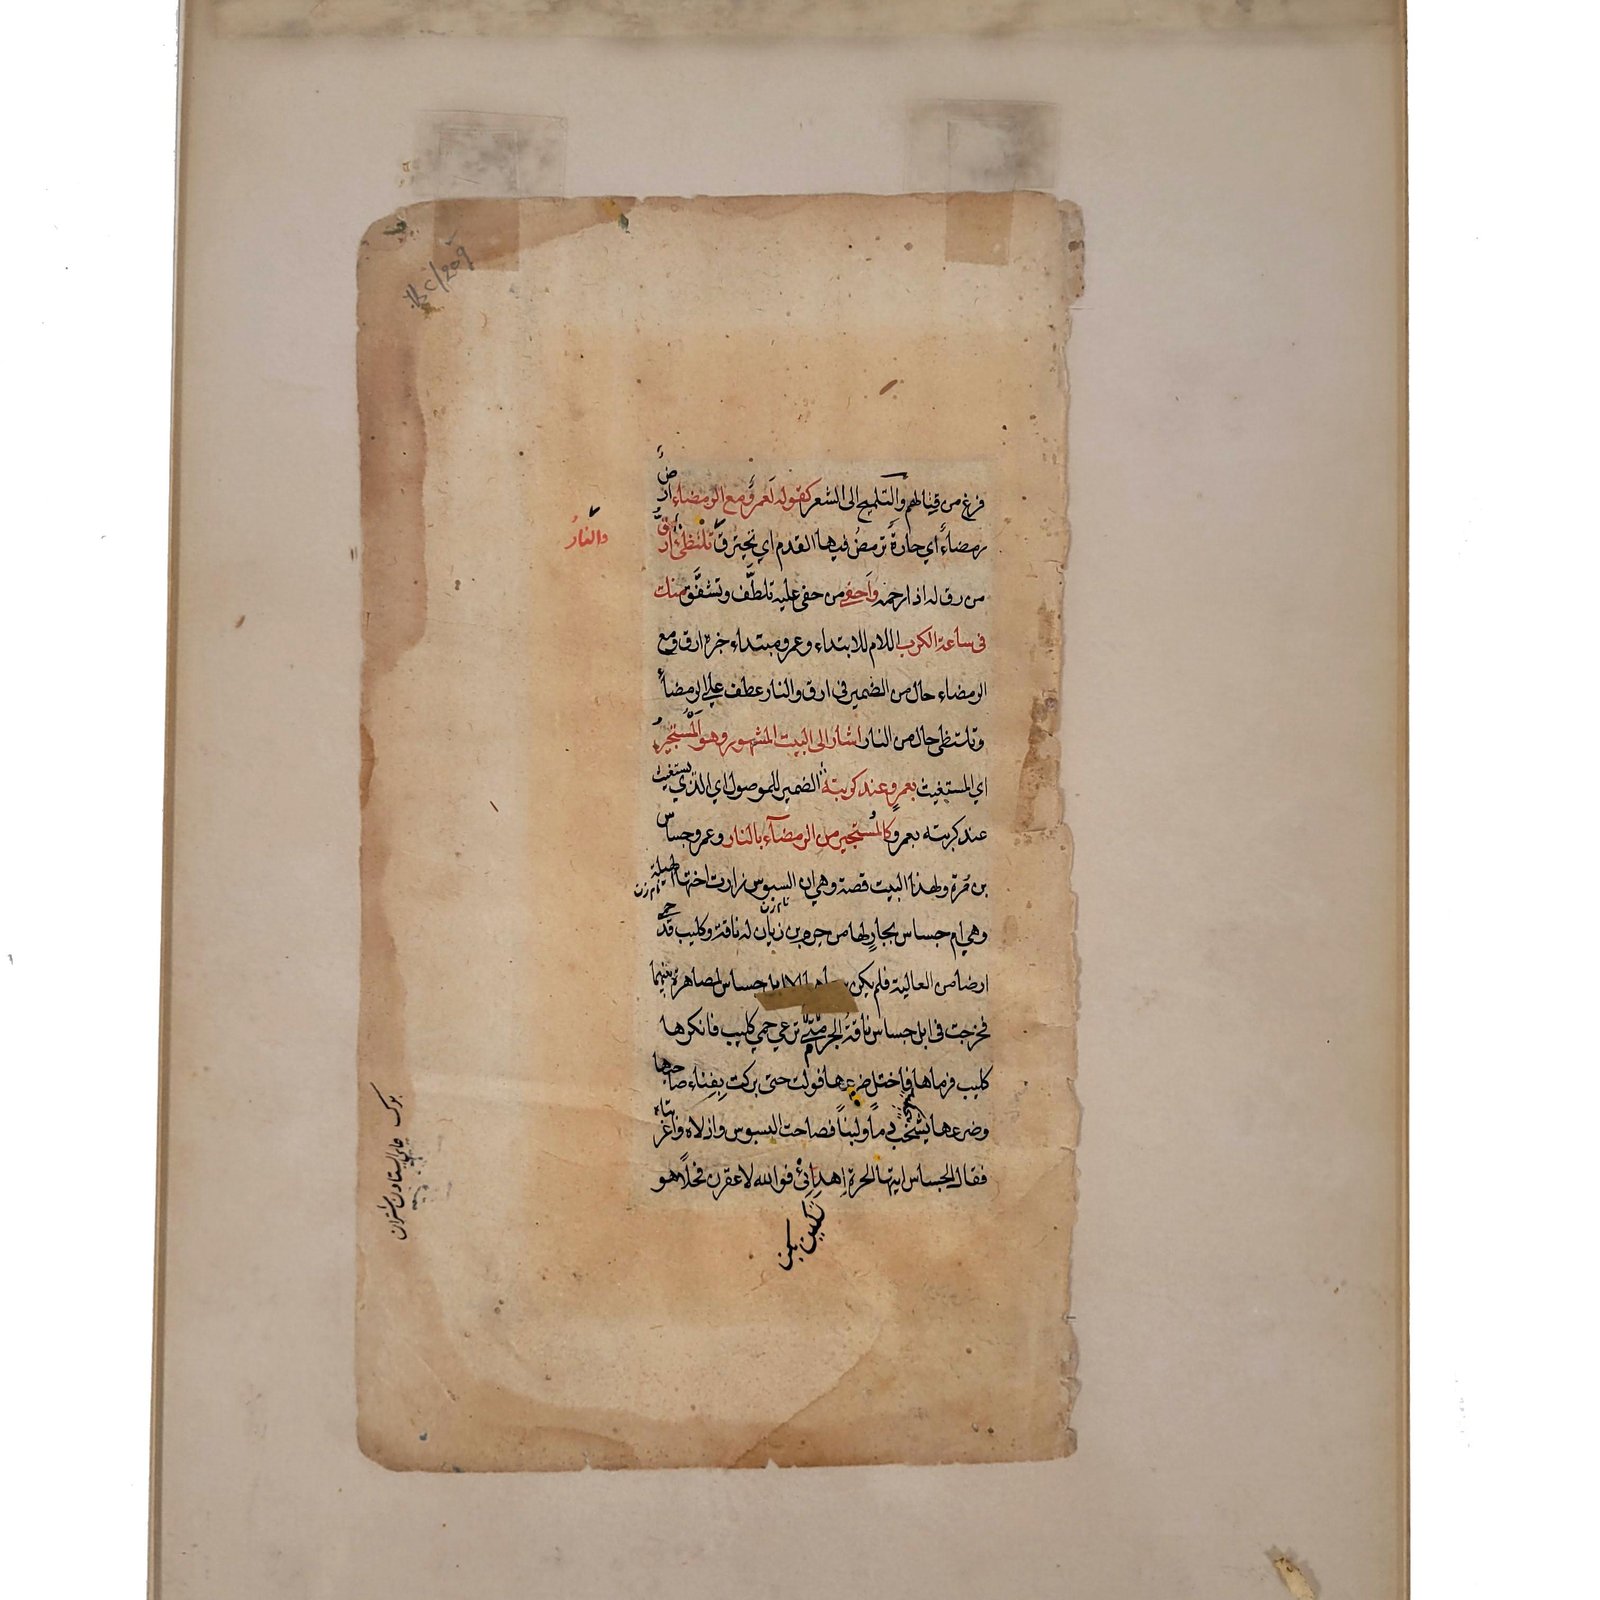 فرغ من قتالهم والتلميح الى الشعر كقوله لعمرو مع الرمضاء ارض
رمضاء اي حارة ترمض فيها القدم اي تحترق تلتظى ارق
والنار
من رق له اذا رحمه واحفى من حفى عليه تلطف وتشفق منك
فى ساعة الكرب اللام للابتداء وعمرو مبتداء خبره ارق ومع
الرمضاء حال من الضمير فى ارق والنار عطف على الرمضاء
وتلتظى حال من النار اشار الى البيت المشهور وهو المستجير
اي المستغيث بعمرو عند كربته الضمير للموصول اي الذي يستغيث
عند كربته بعمرو كالمستجير من الرمضاء بالنار وعمرو جساس
بن مرة ولهذا البيت قصة وهي ان البسوس زارت اختها الهيلة
نام زن
نام زن
وهي ام جساس بجار لها من جرم بن زبان له ناقة وكليب قد حمى
ارضا من العالية فلم يكن الا ابل جساس لمصاهرة بينهما
فخرجت فى ابل جساس ناقة الجرمي ترعى حمى كليب فانكرها
كليب فرماها فاختل ضرعها فولت حتى بركت بفناء صاحبها
وضرعها يشخب دما ولبنا فصاحت البسوس واذلاه واغربتاه
فقال الجساس ايتها الحرة اهدائي فوالله لاعقرن فحلا هو